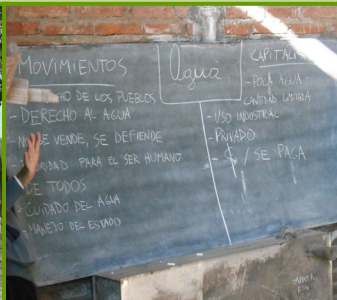 MOVIMIENTOS
HO DE LOS PUEBLOS
- DERECHO AL AGUA
- NO SE VENDE, SE DEFIENDE
RIDAD PARA EL SER HUMANO
DE TODOS
- CUIDADO DEL AGUA
- MANEJO DEL ESTADO
Agua
CAPITALI
- POCA AGUA -
CANTIDAD LIMITADA
- USO INDUSTRIAL
- PRIVADO
- $ / SE PAGA